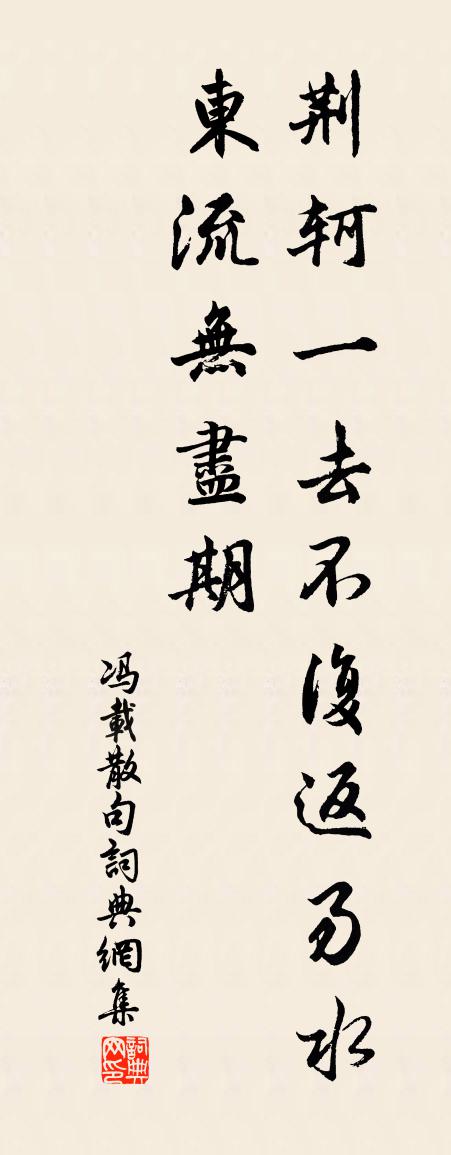 荆轲一去不復返易水
東流無盡期
冯載散句詞典網集
詞典网印